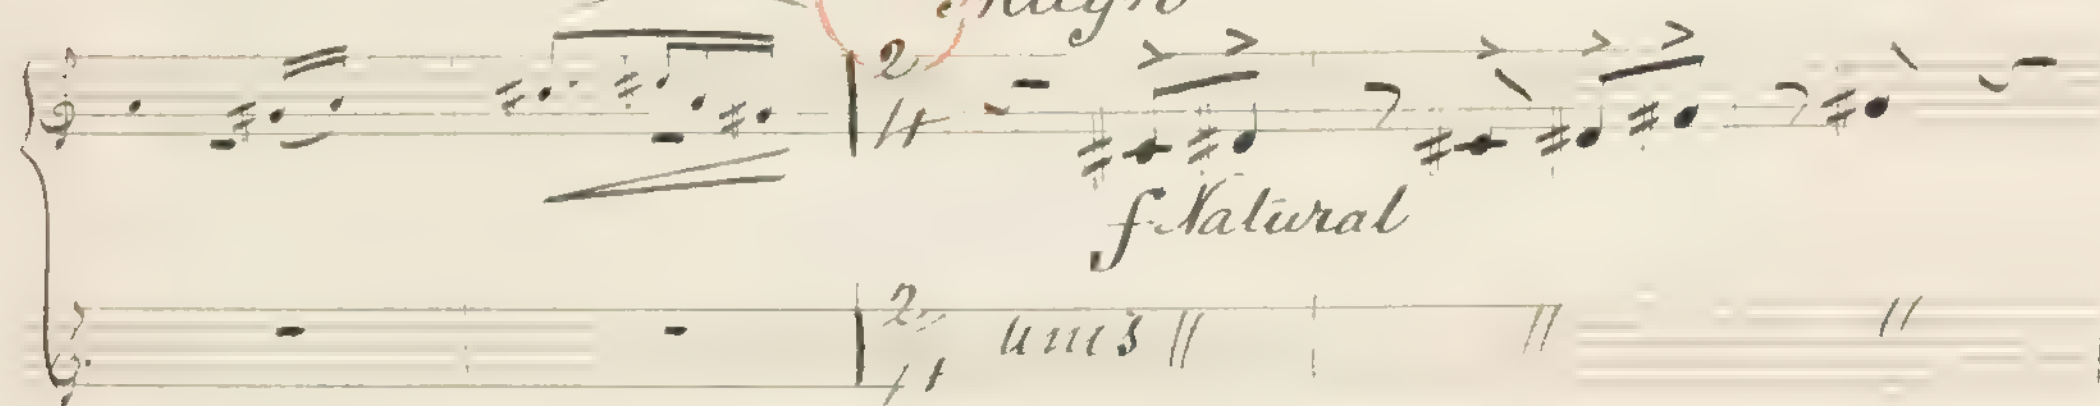 Allegro
2
4
f Natural
2
4
unis //
//
//